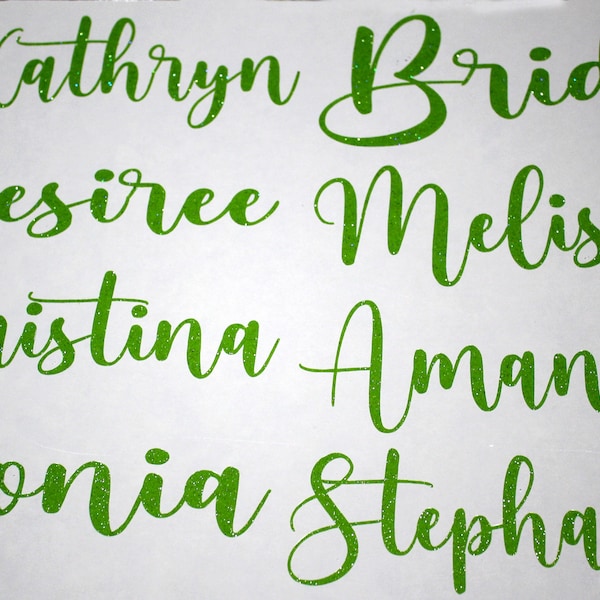 Kathryn Brid
esiree Melis
ristina Aman
onia Stepha